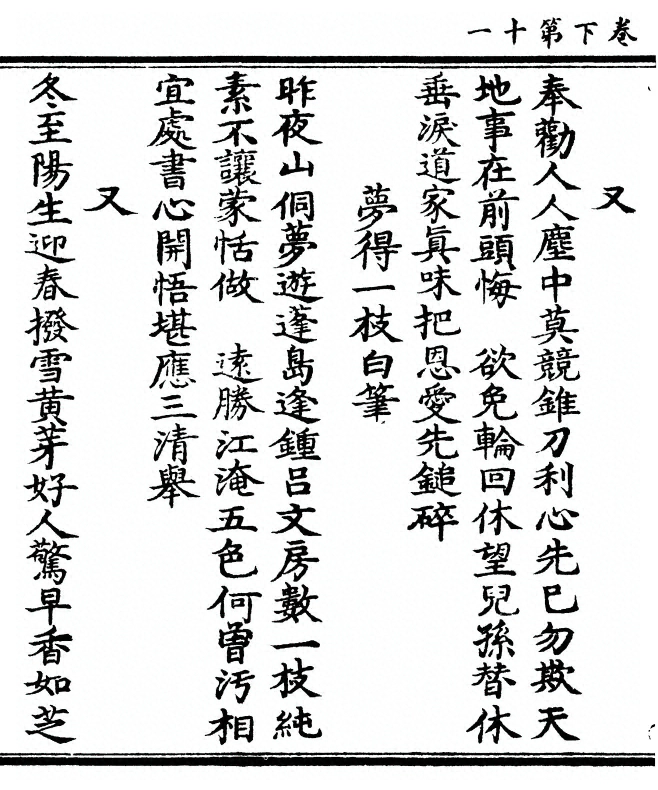 卷下第十一
又
奉勸人人塵中莫競錐刀利心先巳勿欺天
地事在前頭悔　欲免輪回休望兒孫替休
垂淚道家眞味把恩愛先鎚碎
夢得一枝白筆
昨夜山侗夢遊蓬島逢鍾吕文房數一枝純
素不讓蒙恬做　遠勝江淹五色何曾汚相
宜處書心開悟堪應三清舉
又
冬至陽生迎春撥雪黄芽好人驚早香如芝